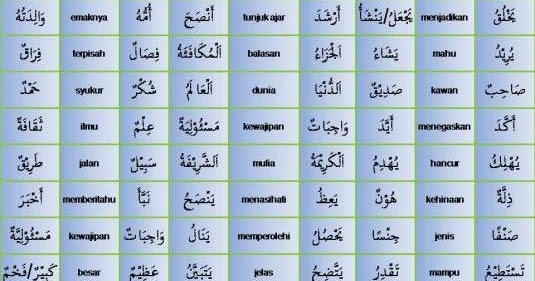 وَالِدَتُهُ emaknya أُمُّهُ أَنْصَحَ tunjuk ajar أَرْشَدَ يَجْعَلُ/يَنْشَأُ menjadikan يَخْلُقُ
فِرَاقٌ terpisah فِصَالٌ اَلْمُكَافَئَةُ balasan اَلْجَزَاءُ يَشَاءُ mahu يُرِيْدُ
حَمْدٌ syukur شُكْرٌ اَلْعَالَمُ dunia اَلدُّنْيَا صَدِيْقٌ kawan صَاحِبٌ
ثَقَافَةٌ ilmu عِلْمٌ مَسْئُوْلِيَّةٌ kewajipan وَاجِبَاتٌ أَيَّدَ menegaskan أَكَّدَ
طَرِيْقٌ jalan سَبِيْلٌ اَلشَّرِيْفَةُ mulia اَلْكَرِيْمَةُ يُهْدِمُ hancur يُهْلِكُ
أَخْبَرَ memberitahu نَبَّأَ يَنْصَحُ menasihati يَعِظُ هُوْنٌ kehinaan ذِلَّةٌ
مَسْئُوْلِيَّةٌ kewajipan وَاجِبَاتٌ يَنَالُ memperolehi يَحْصُلُ جِنْسًا jenis صَنْفًا
كَبِيْرٌ/فَخْمٌ besar عَظِيْمٌ يَتَبَيَّنُ jelas يَتَّضِحُ تَقْدِرُ mampu تَسْتَطِيْعُ